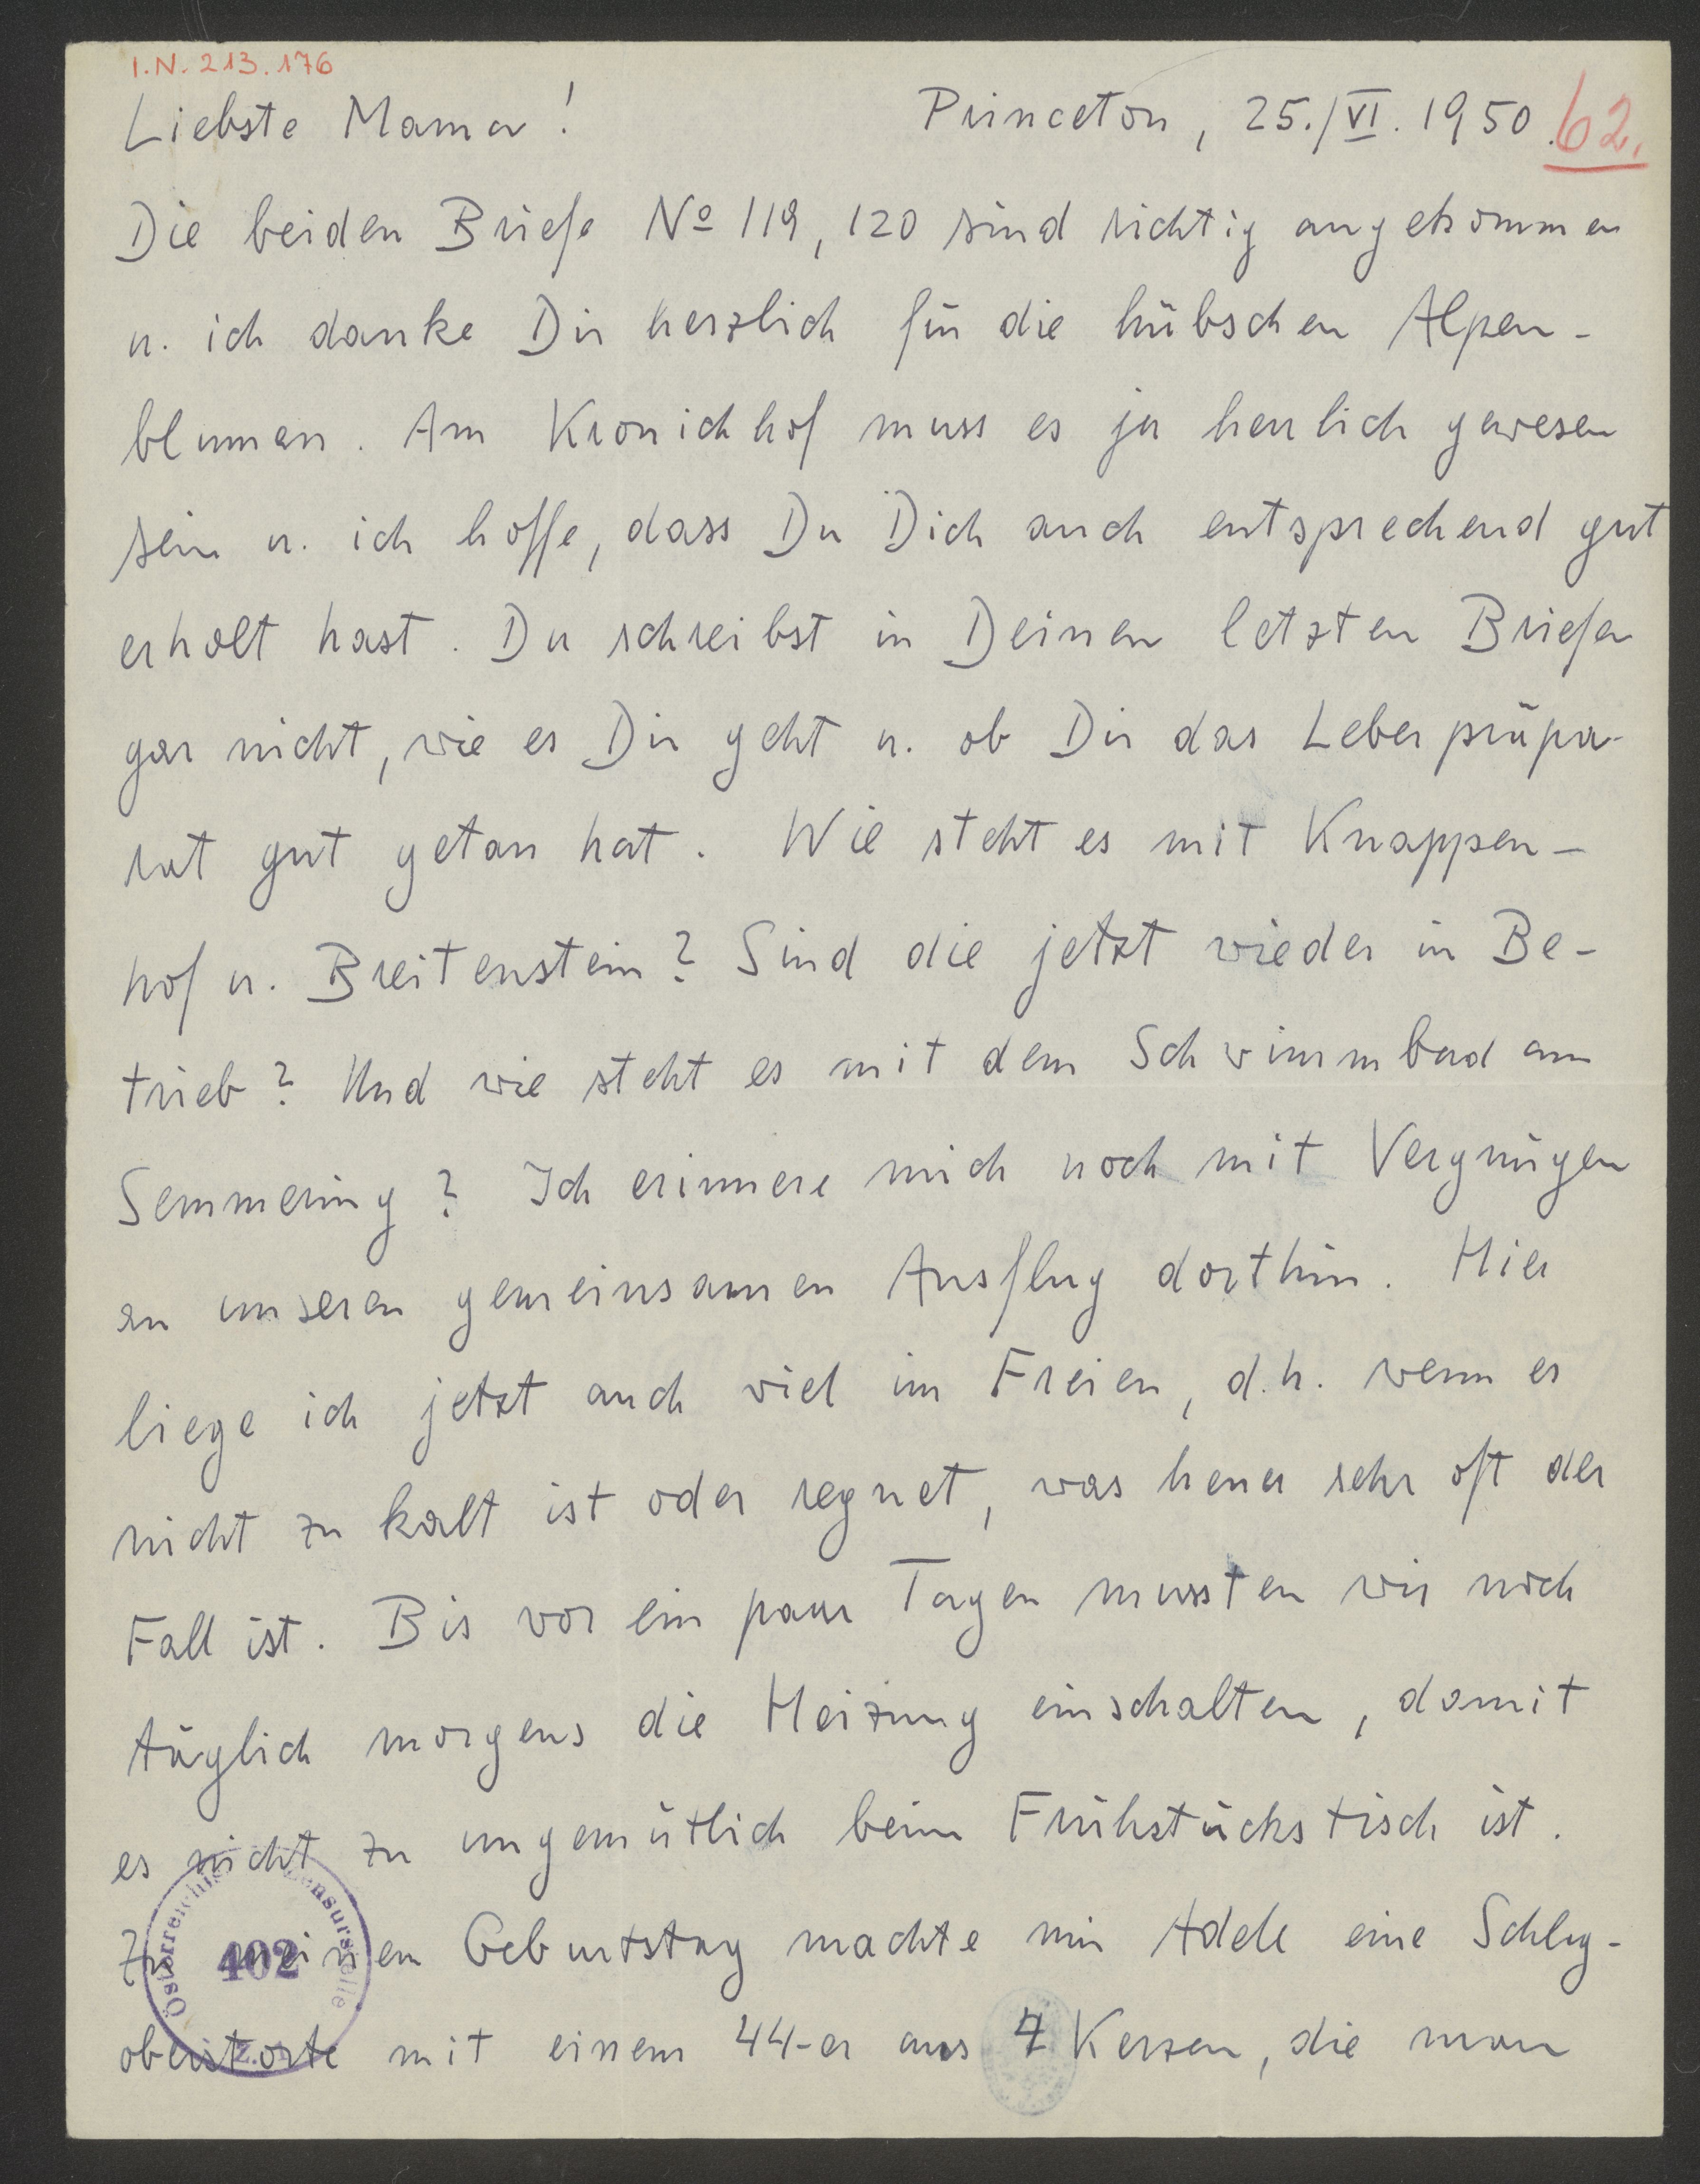 I.N. 213.176
Liebste Mama! Princeton, 25./VI. 1950. 62.
Die beiden Briefe No 119, 120 sind richtig angekommen
u. ich danke Dir herzlich für die hübschen Alpen-
blumen. Am Kronichhof muss es ja herrlich gewesen
sein u. ich hoffe, dass Du Dich auch entsprechend gut
erholt hast. Du schreibst in Deinen letzten Briefen
gar nicht, wie es Dir geht u. ob Dir das Leberpräpa-
rat gut getan hat. Wie steht es mit Knappen-
hof u. Breitenstein? Sind die jetzt wieder in Be-
trieb? Und wie steht es mit dem Schwimmbad am
Semmering? Ich erinnere mich noch mit Vergnügen
an unseren gemeinsamen Ausflug dorthin. Hier
liege ich jetzt auch viel im Freien, d.h. wenn es
nicht zu kalt ist oder regnet, was heuer sehr oft der
Fall ist. Bis vor ein paar Tagen mussten wir noch
täglich morgens die Heizung einschalten, damit
es nicht zu ungemütlich beim Frühstückstisch ist.
Zu meinem Geburtstag machte mir Adele eine Schlag-
oberstorte mit einem 44-er aus 7 Kerzen, die man
Österreichische Zensurstelle
402